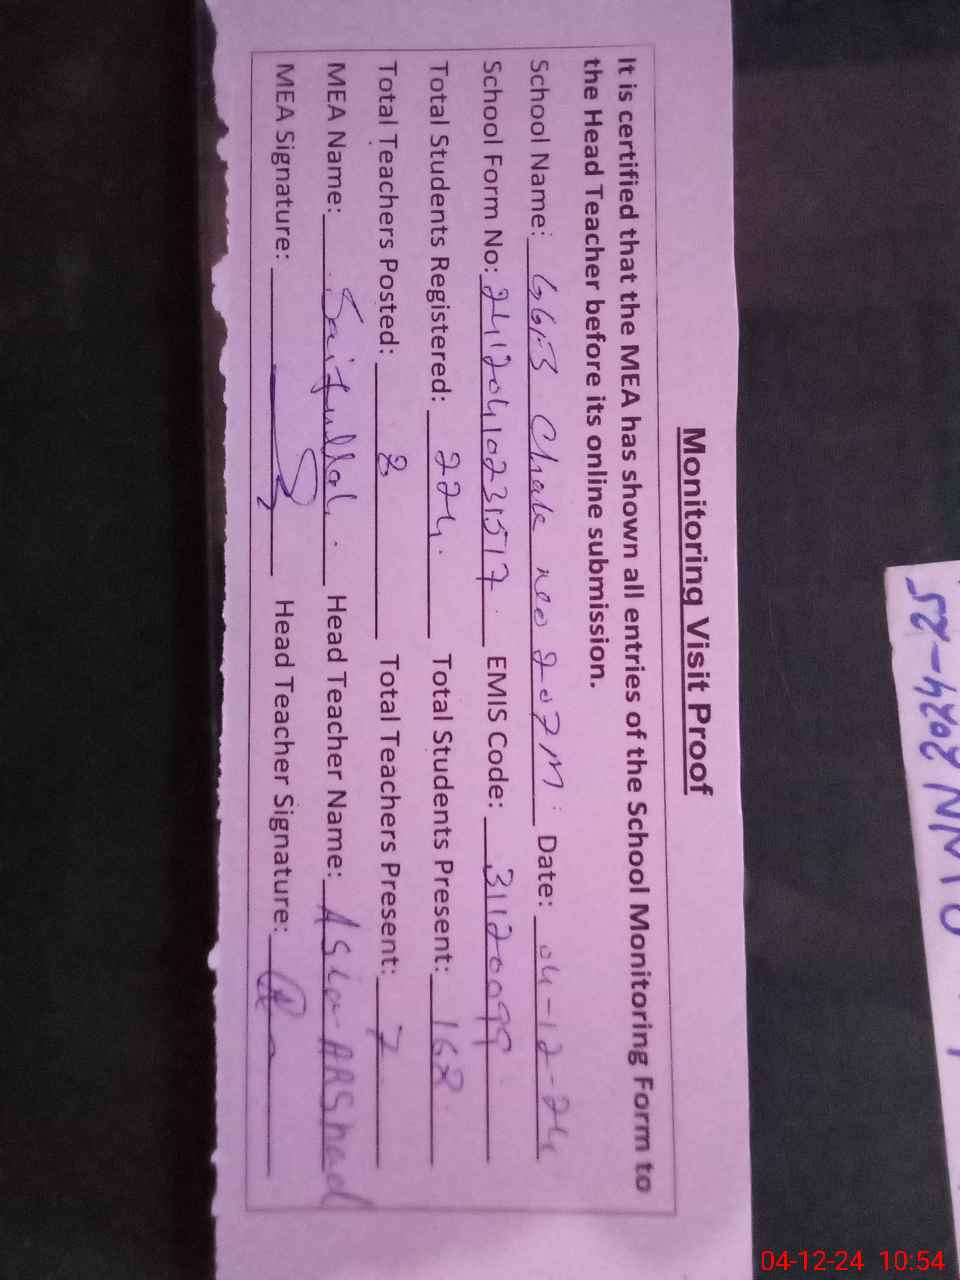 Monitoring Visit Proof
It is certified that the MEA has shown all entries of the School Monitoring Form to
the Head Teacher before its online submission.
School Name: GGES Chak no 207M Date: 04-12-24
School Form No: 24120410231517 EMIS Code: 31120099
Total Students Registered: 224 Total Students Present: 168
Total Teachers Posted: 8 Total Teachers Present: 7
MEA Name: Saifullah Head Teacher Name: Asia ARShad
MEA Signature: Head Teacher Signature:
2024-25
04-12-24 10:54